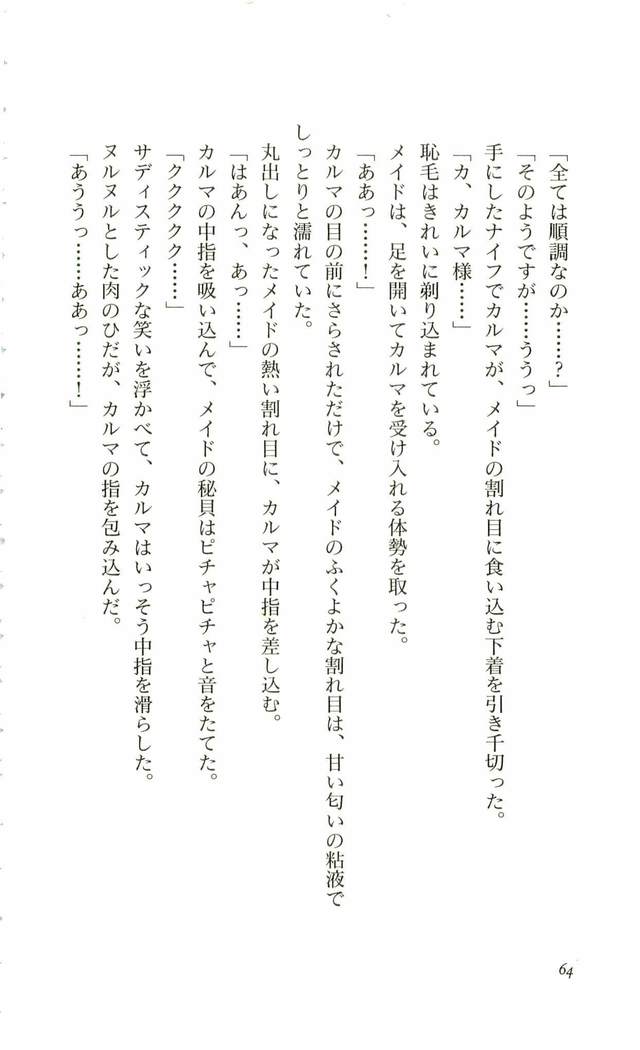 「全ては順調なのか……？」
「そのようですが……ううっ」
手にしたナイフでカルマが、メイドの割れ目に食い込む下着を引き千切った。
「カ、カルマ様……」
恥毛はきれいに剃り込まれている。
メイドは、足を開いてカルマを受け入れる体勢を取った。
「ああっ……！」
カルマの目の前にさらされただけで、メイドのふくよかな割れ目は、甘い匂いの粘液で
しっとりと濡れていた。
丸出しになったメイドの熱い割れ目に、カルマが中指を差し込む。
「はあんっ、あっ……」
カルマの中指を吸い込んで、メイドの秘貝はピチャピチャと音をたてた。
「ククククク……」
サディスティックな笑いを浮かべて、カルマはいっそう中指を滑らした。
ヌルヌルとした肉のひだが、カルマの指を包み込んだ。
「あううっ……ああっ……！」
64